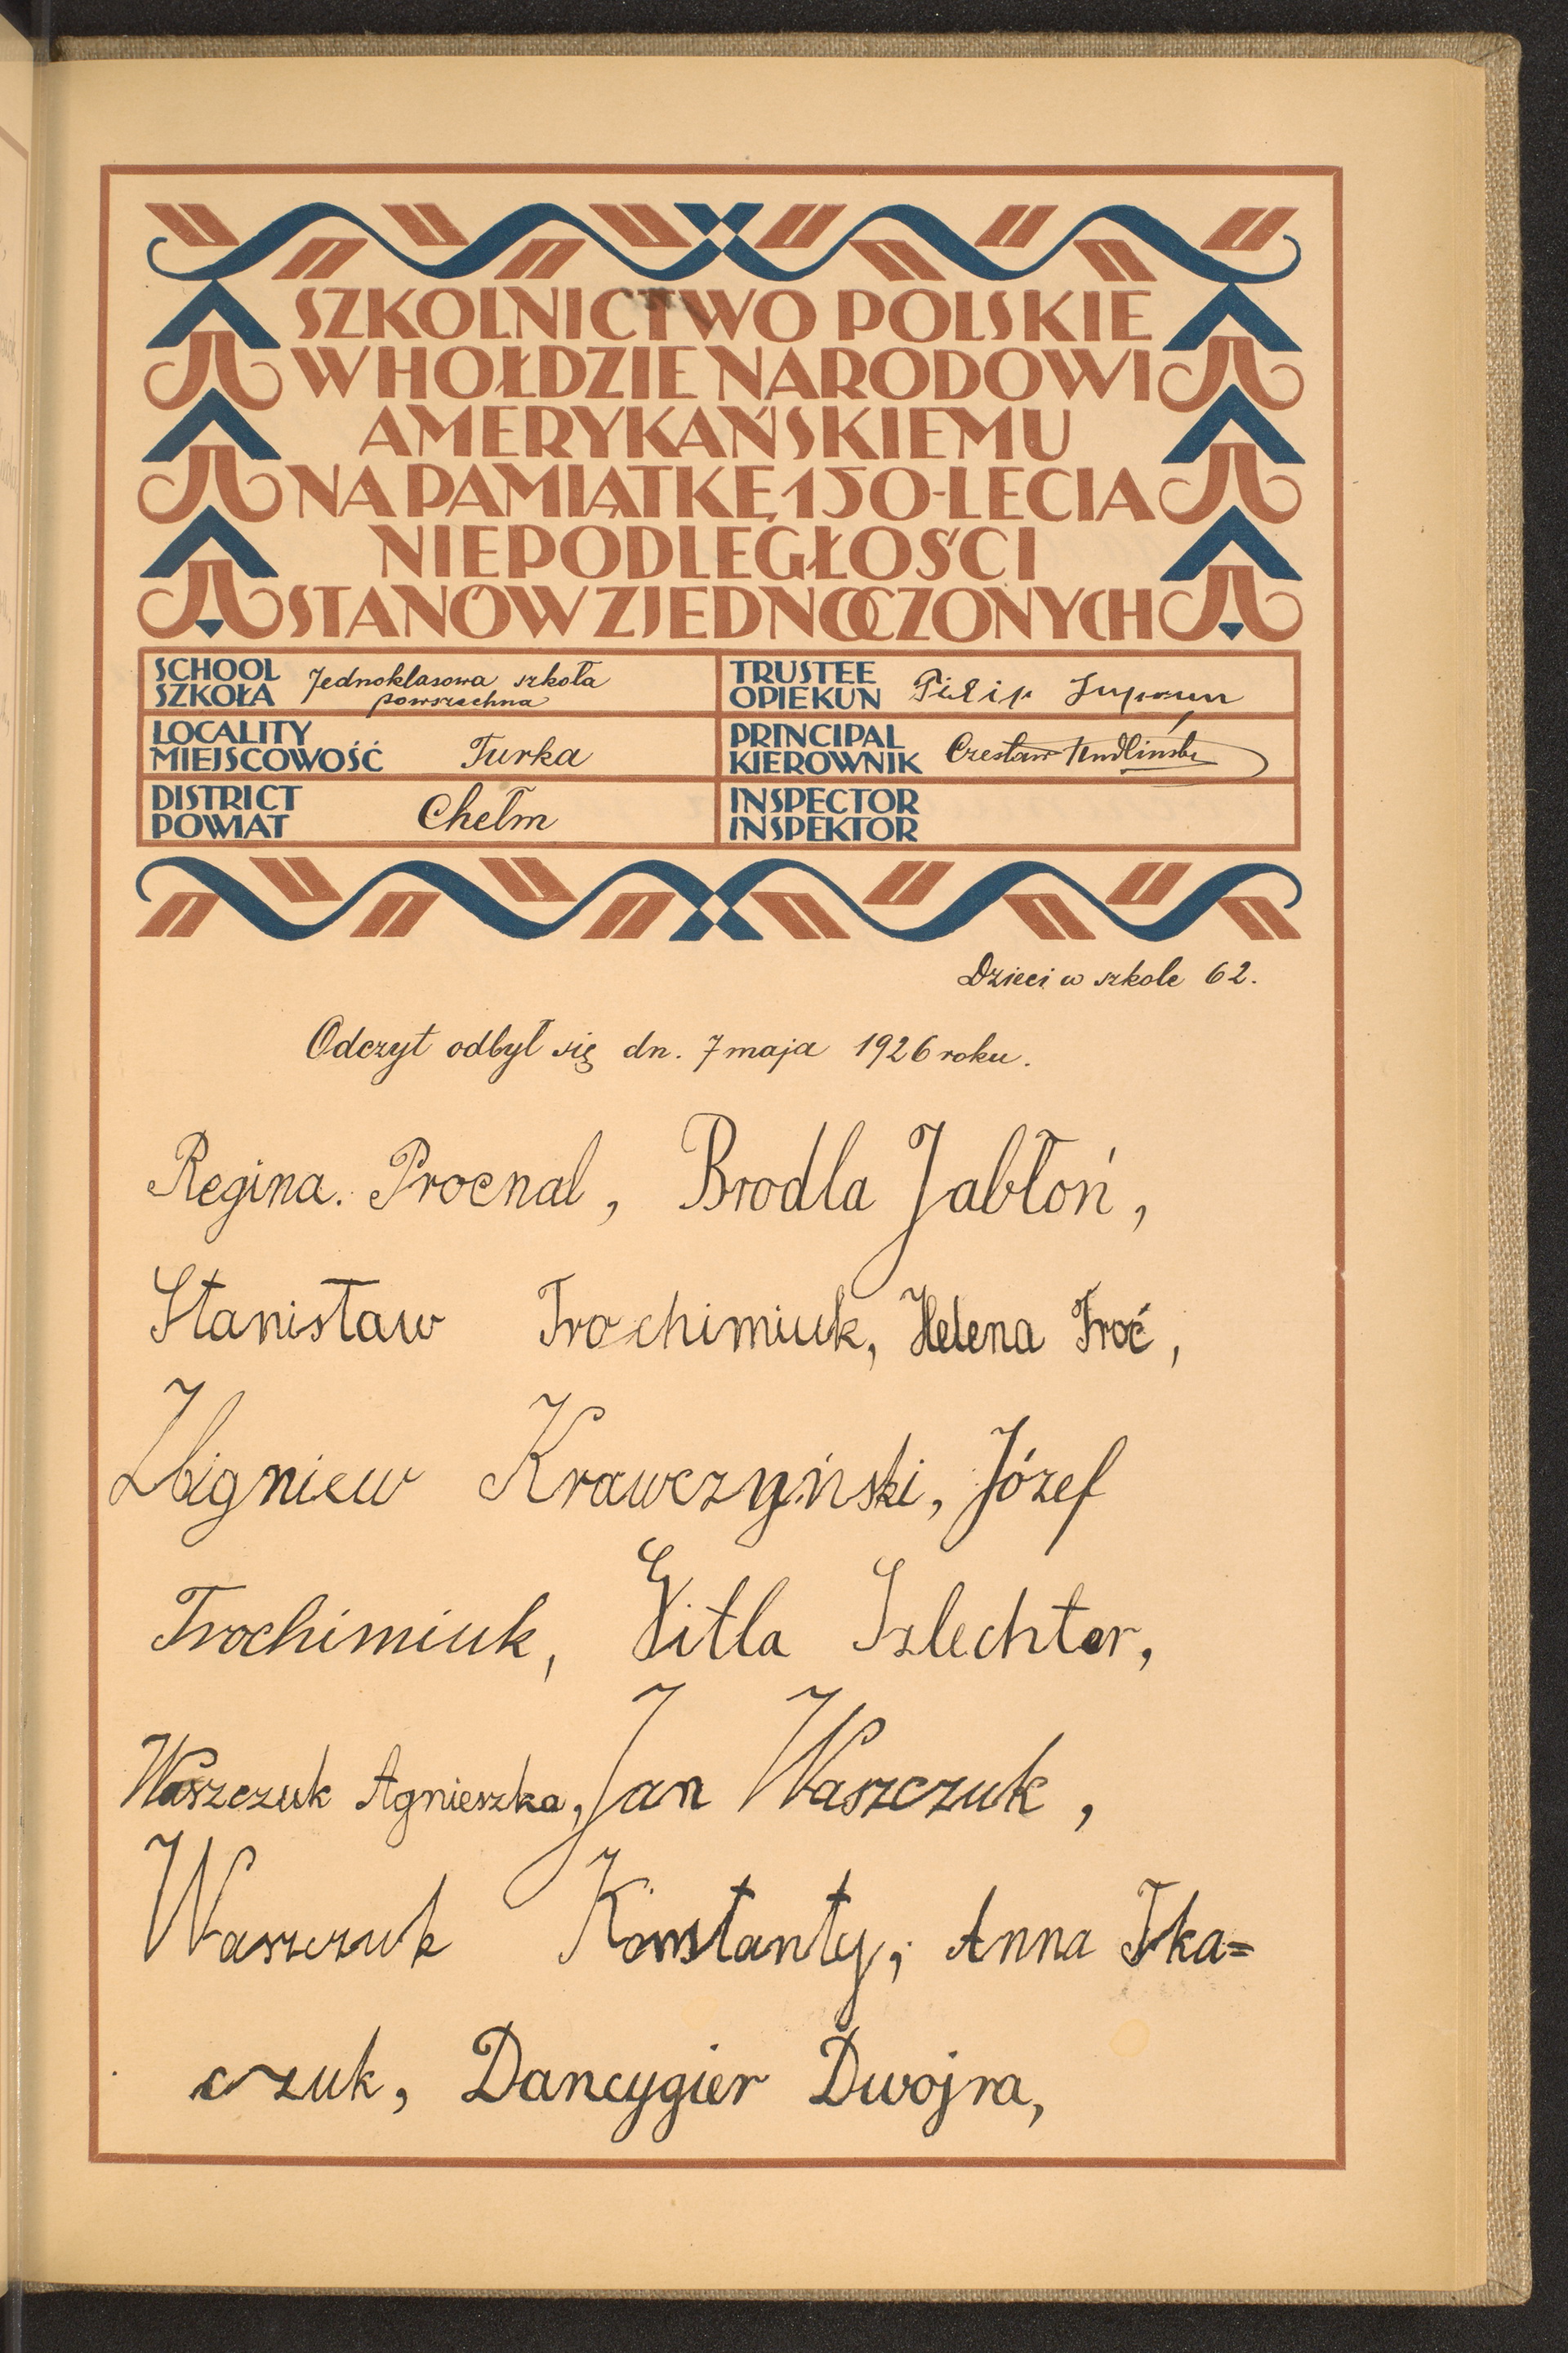 SZKOLNICTWO POLSKIE
W HOŁDZIE NARODOWI
AMERYKAŃSKIEMU
NA PAMIĄTKĘ 150-LECIA
NIEPODLEGŁOŚCI
STANÓW ZJEDNOCZONYCH
SCHOOL
SZKOŁA Jednoklasowa szkoła
powszechna
TRUSTEE
OPIEKUN Filip
LOCALITY
MIEJSCOWOŚĆ Turka
PRINCIPAL
KIEROWNIK Czesław
DISTRICT
POWIAT Chełm
INSPECTOR
INSPEKTOR
Dzieci w szkole 62.
Odczyt odbył się dn. 7 maja 1926 roku.
Regina. Procnal, Brodla Jabłoń,
Stanisław Trochimiuk, Helena Troć,
Zbigniew Krawczyński, Józef
Trochimiuk, Gitla Szlechter,
Waszczuk Agnieszka, Jan Waszczuk,
Waszczuk Konstanty, Anna Tka=
czuk, Dancygier Dwojra,